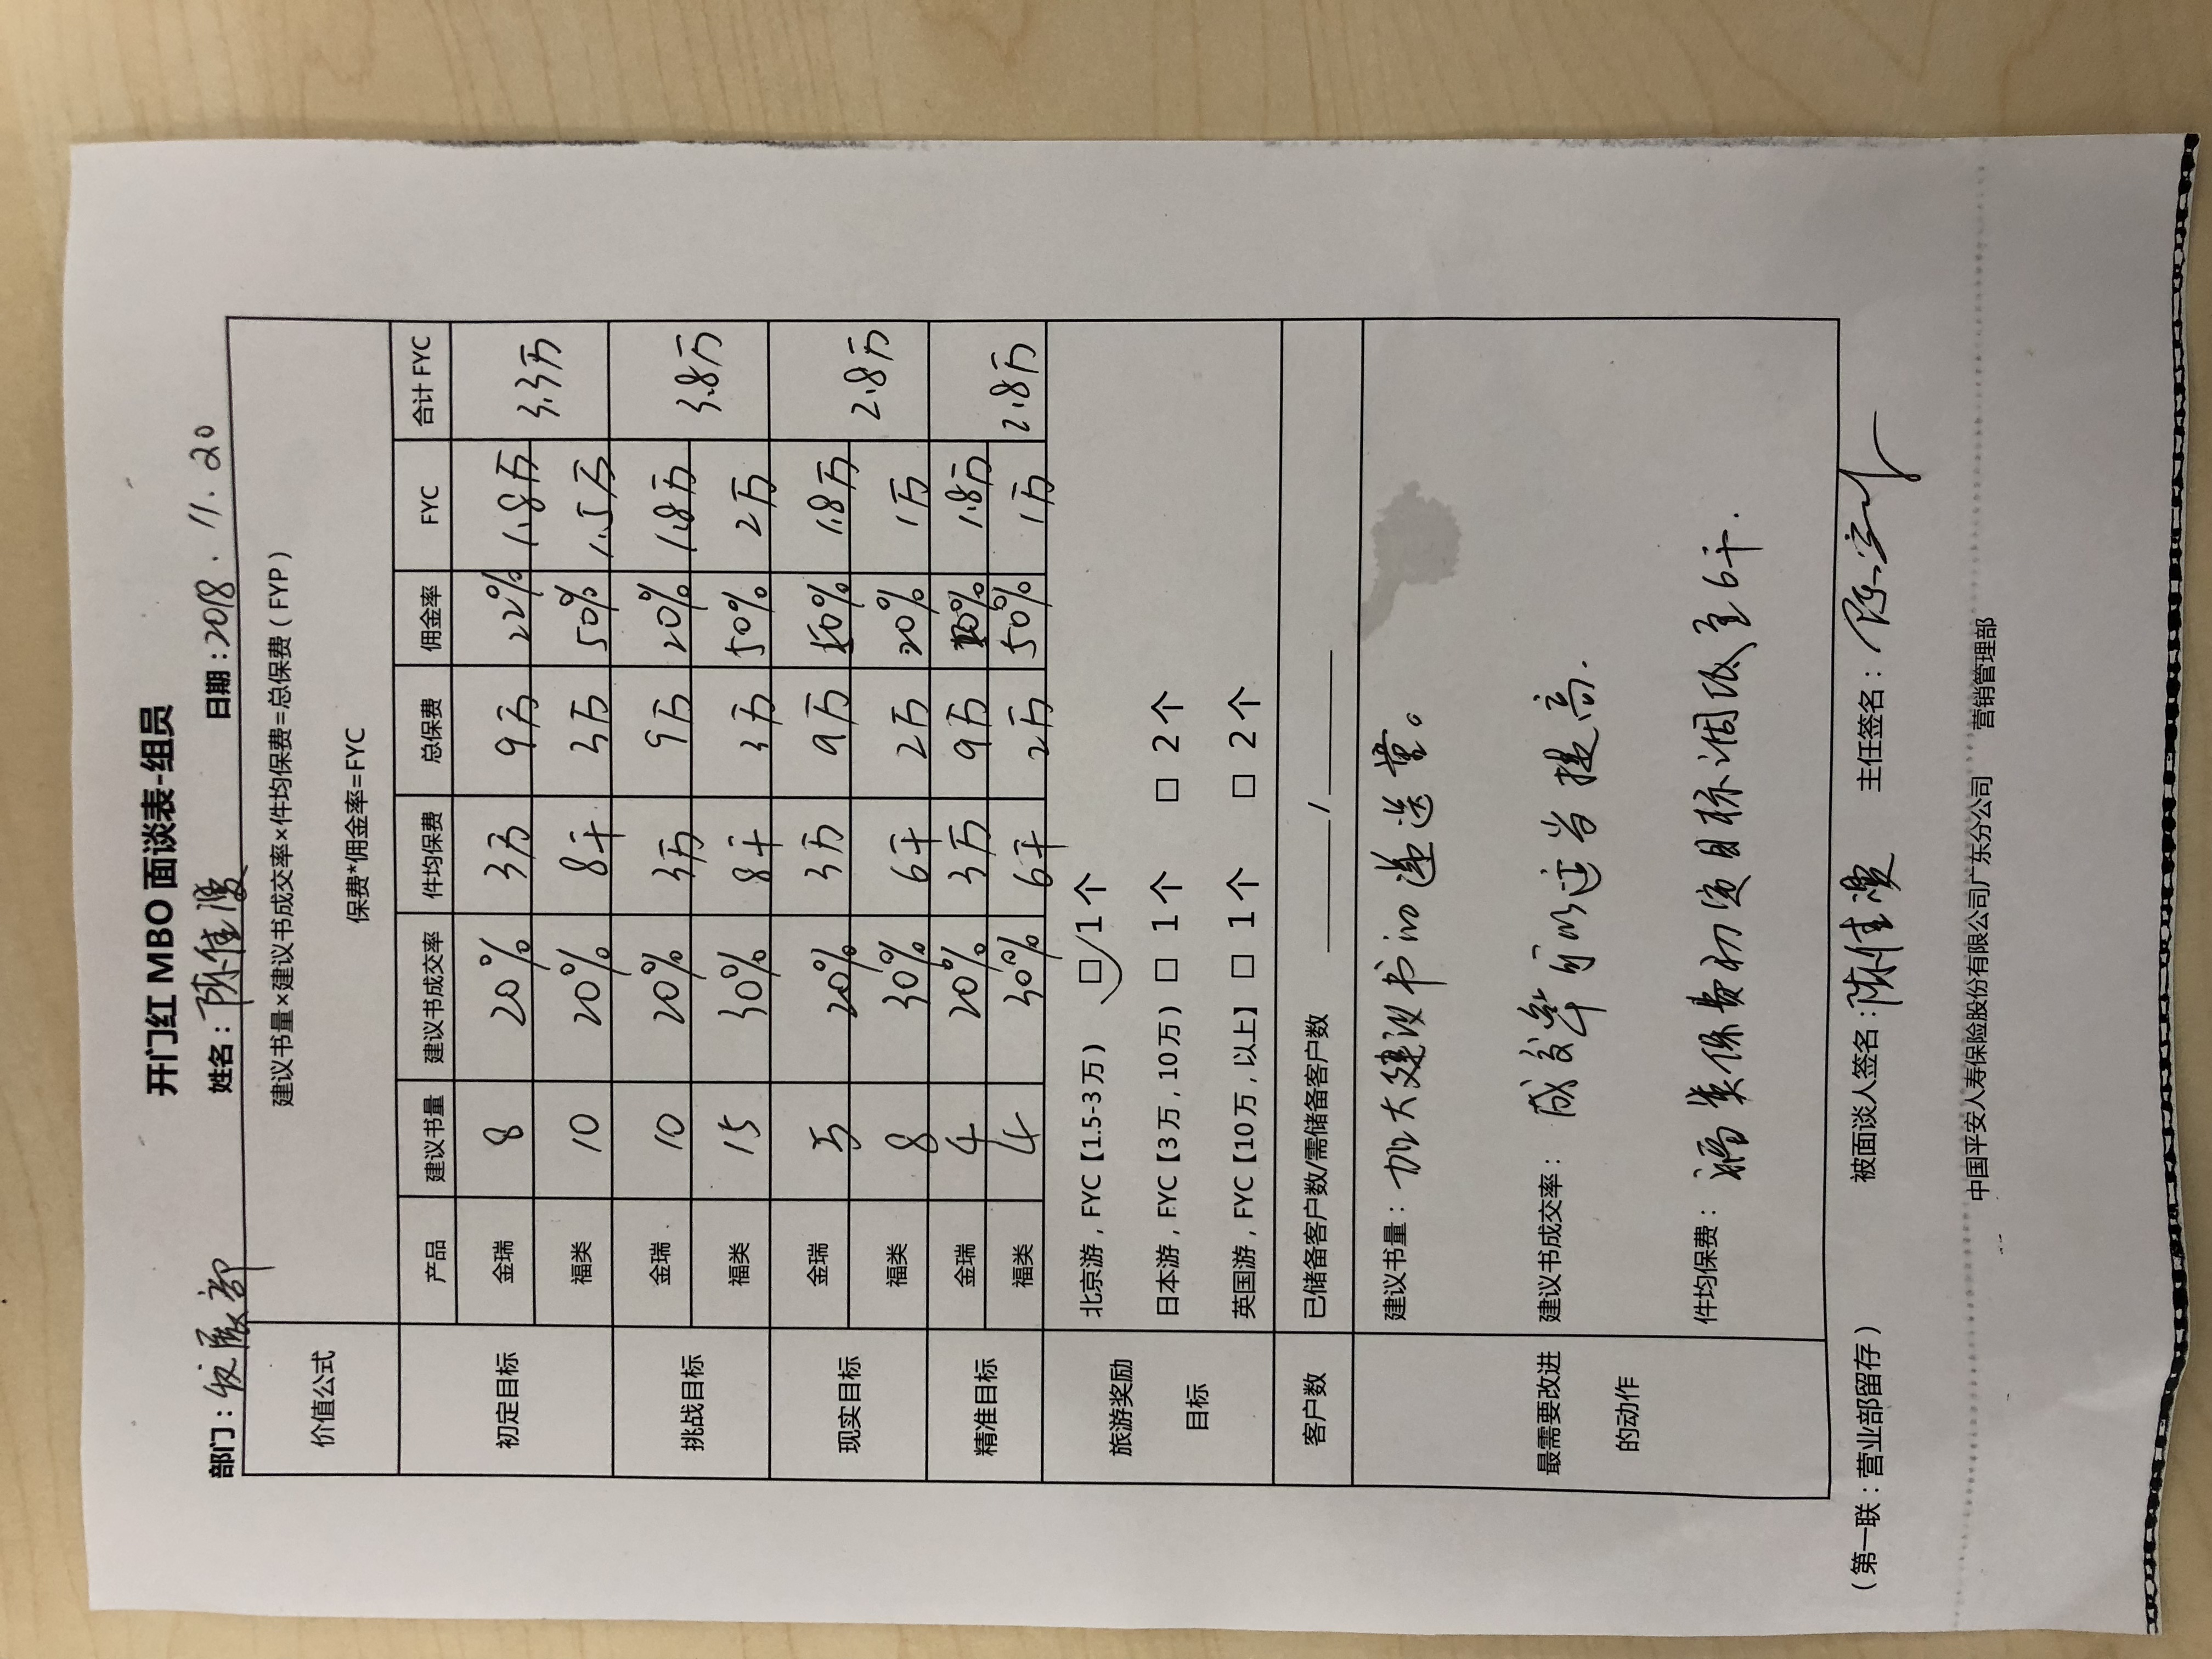 开门红 MBO 面谈表-组员
部门：发展部 姓名：陈佳 日期：2018.11.20
价值公式 建议书量×建议书成交率×件均保费=总保费（FYP）
保费*佣金率=FYC
产品 建议书量 建议书成交率 件均保费 总保费 佣金率 FYC 合计 FYC
初定目标 金瑞 8 20% 3万 9万 22% 1.8万 3.3万
福类 10 20% 8千 3万 50% 1.5万
挑战目标 金瑞 10 20% 3万 9万 20% 1.8万 3.8万
福类 15 30% 8千 3万 50% 2万
现实目标 金瑞 5 20% 3万 9万 50% 1.8万 2.8万
福类 8 30% 6千 2万 20% 1万
精准目标 金瑞 4 20% 3万 9万 20% 1.8万 2.8万
福类 4 30% 6千 2万 50% 1万
旅游奖励目标
北京游，FYC【1.5-3万） □ 1个
日本游，FYC【3万，10万） □ 1个 □ 2个
英国游，FYC【10万，以上】 □ 1个 □ 2个
客户数 已储备客户数/需储备客户数 ______/______
最需要改进的动作
建议书量：加大建议书的递送量。
建议书成交率：成交率可以适当提高.
件均保费：福类保费初定目标调低至6千.
（第一联：营业部留存） 被面谈人签名：陈佳 主任签名：陈
中国平安人寿保险股份有限公司广东分公司 营销管理部